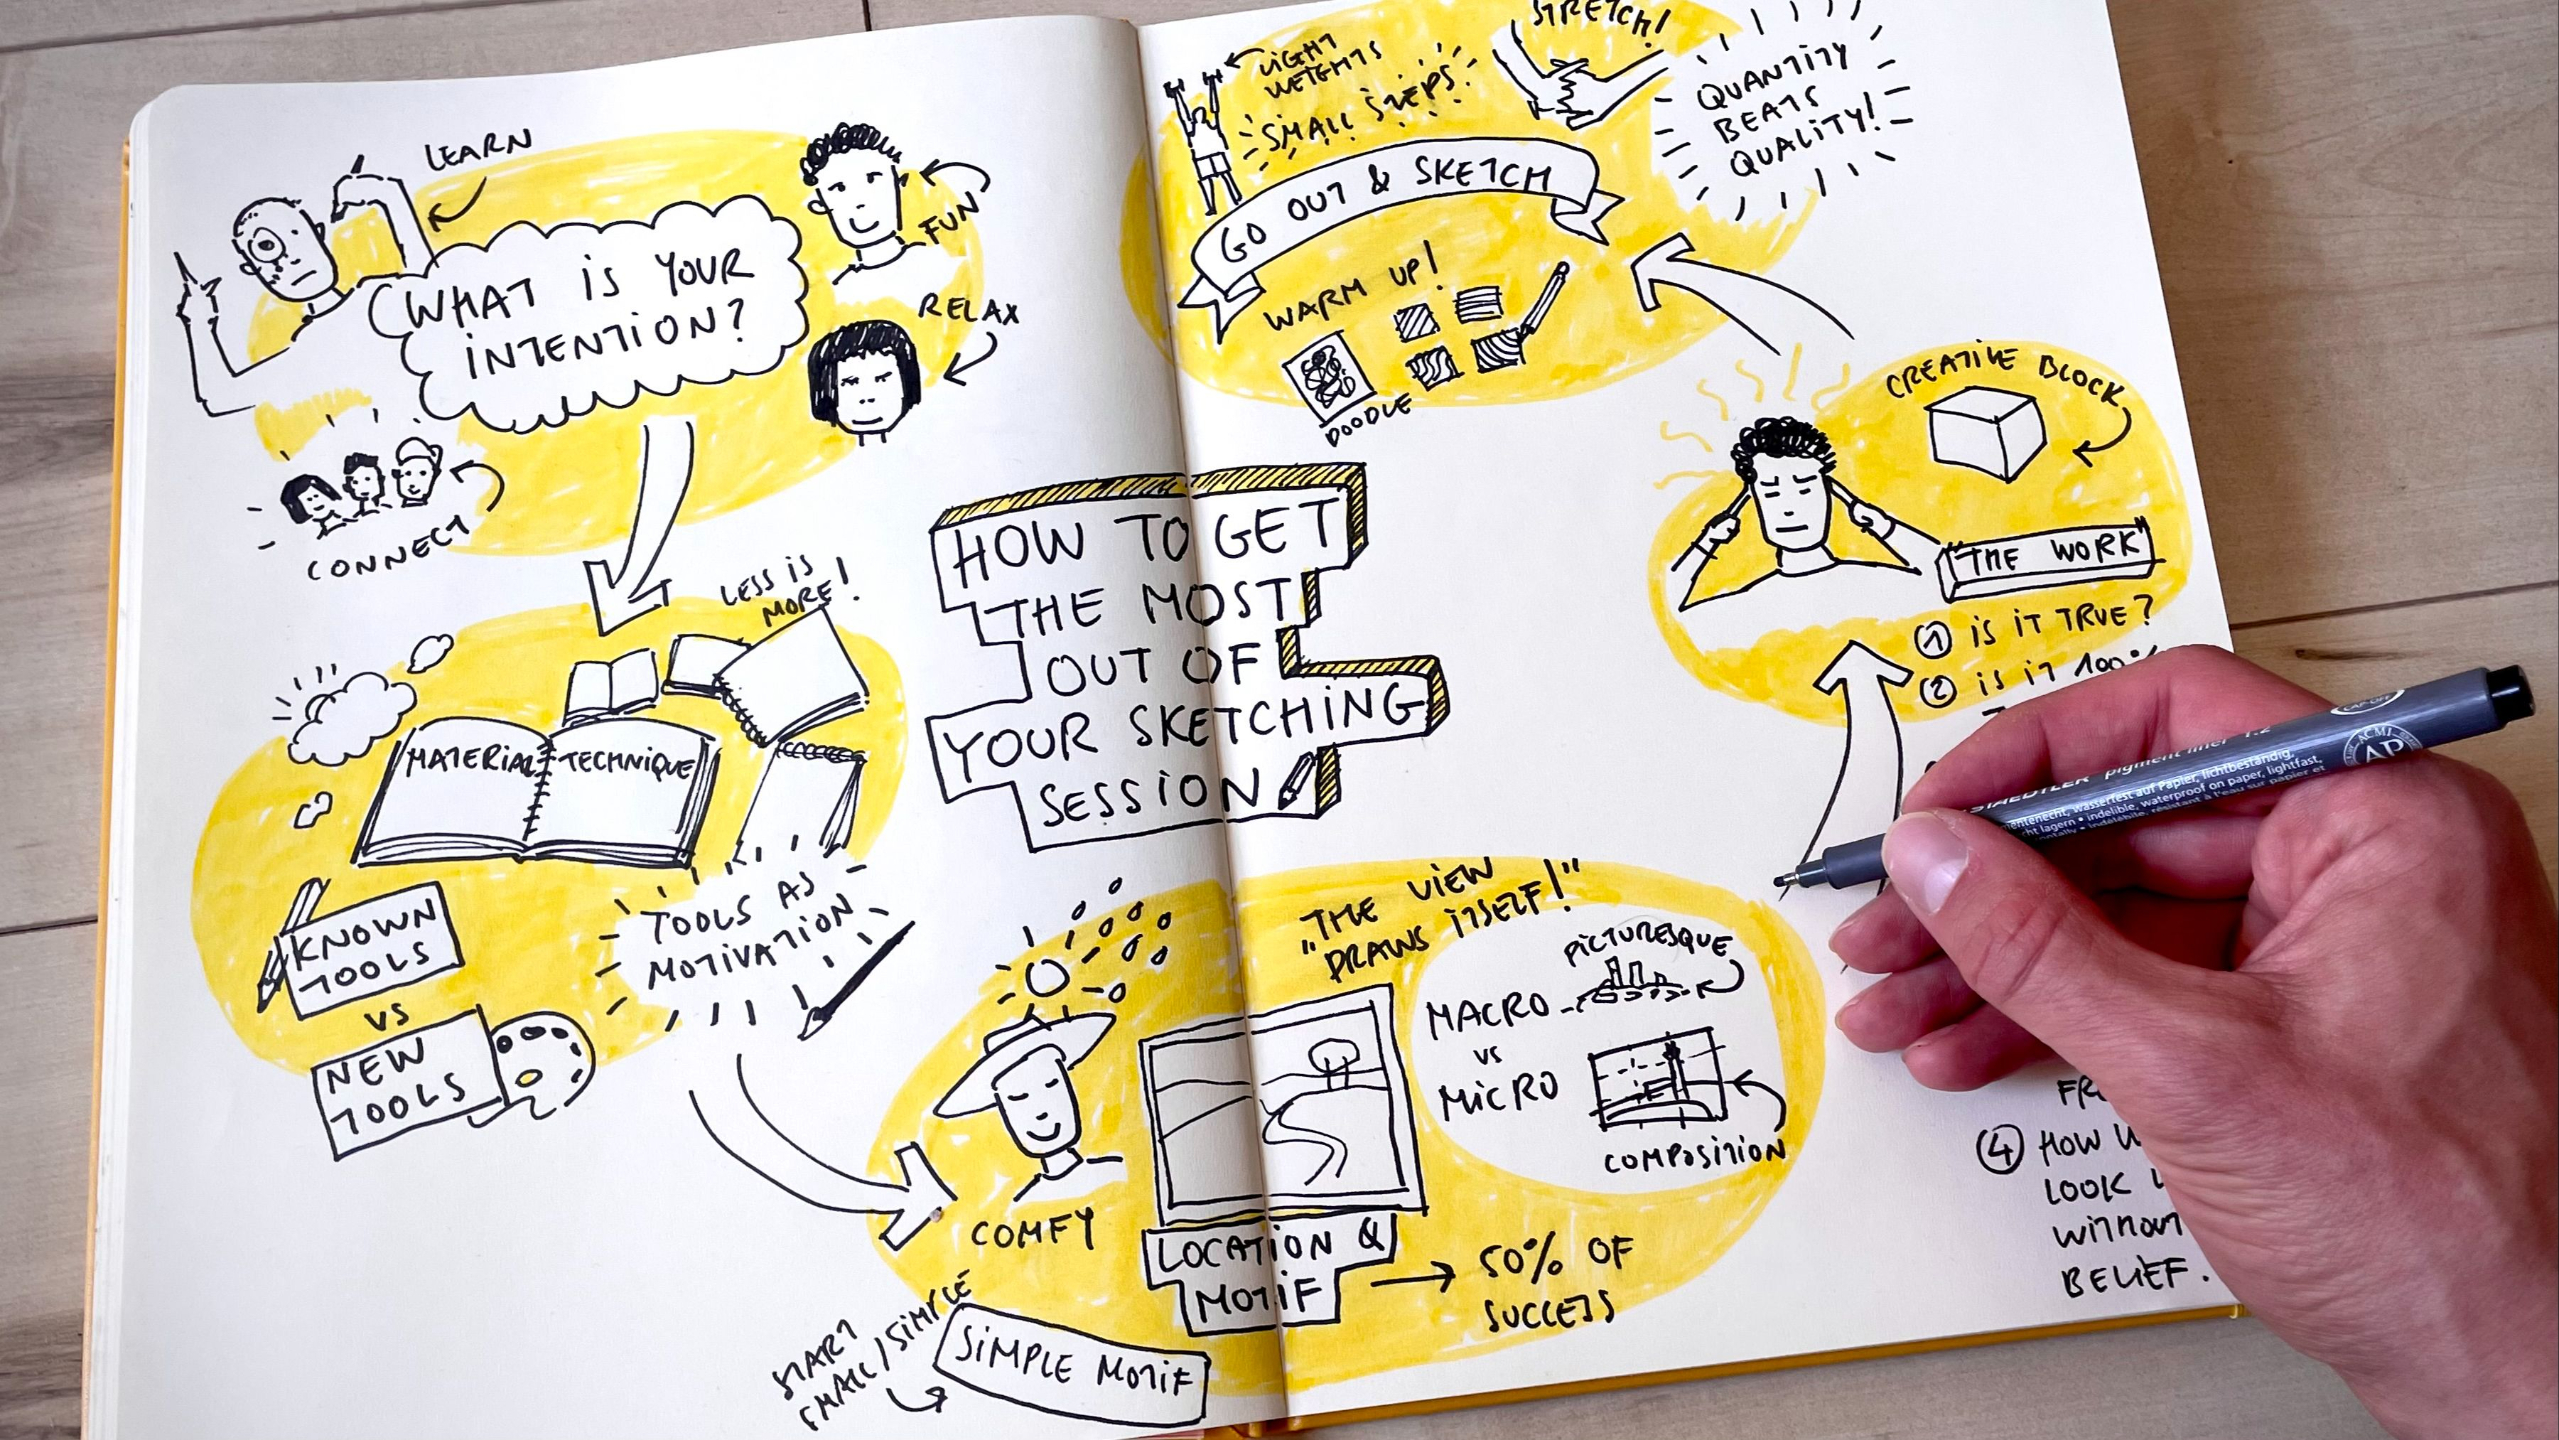 LEARN
FUN
WHAT IS YOUR
INTENTION?
RELAX
CONNECT
LESS IS
MORE!
MATERIAL
TECHNIQUE
KNOWN
TOOLS
VS
NEW
TOOLS
TOOLS AS
MOTIVATION
HOW TO GET
THE MOST
OUT OF
YOUR SKETCHING
SESSION
COMFY
"THE VIEW
DRAWS ITSELF!"
PICTURESQUE
MACRO
VS
MICRO
COMPOSITION
LOCATION &
MOTIF
50% OF
SUCCESS
START
SMALL/SIMPLE
SIMPLE MOTIF
CREATIVE BLOCK
"THE WORK"
1 IS IT TRUE?
2 IS IT 100%
4 HOW
LOOK
WITHOUT
BELIEF.
LIGHT
WEIGHTS
SMALL STEPS!
STRETCH!
QUANTITY
BEATS
QUALITY!
GO OUT & SKETCH
WARM UP!
DOODLE
STAEDTLER pigment liner 1.2
wasserfest auf Papier, lichtbeständig,
indelible, waterproof on paper, lightfast,
CAP-OFF
ACMI
AP